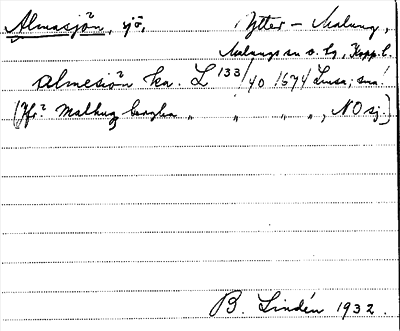 Almasjön, sjö, i Ytter-Malung,
Malungs sn o. tg, Kopp. l.
Almesiön ka. L 133/40 1674 Lmsa; små!
(Jfr? Malhug bergha " " " ", NO sj.)
B. Lindén 1932.